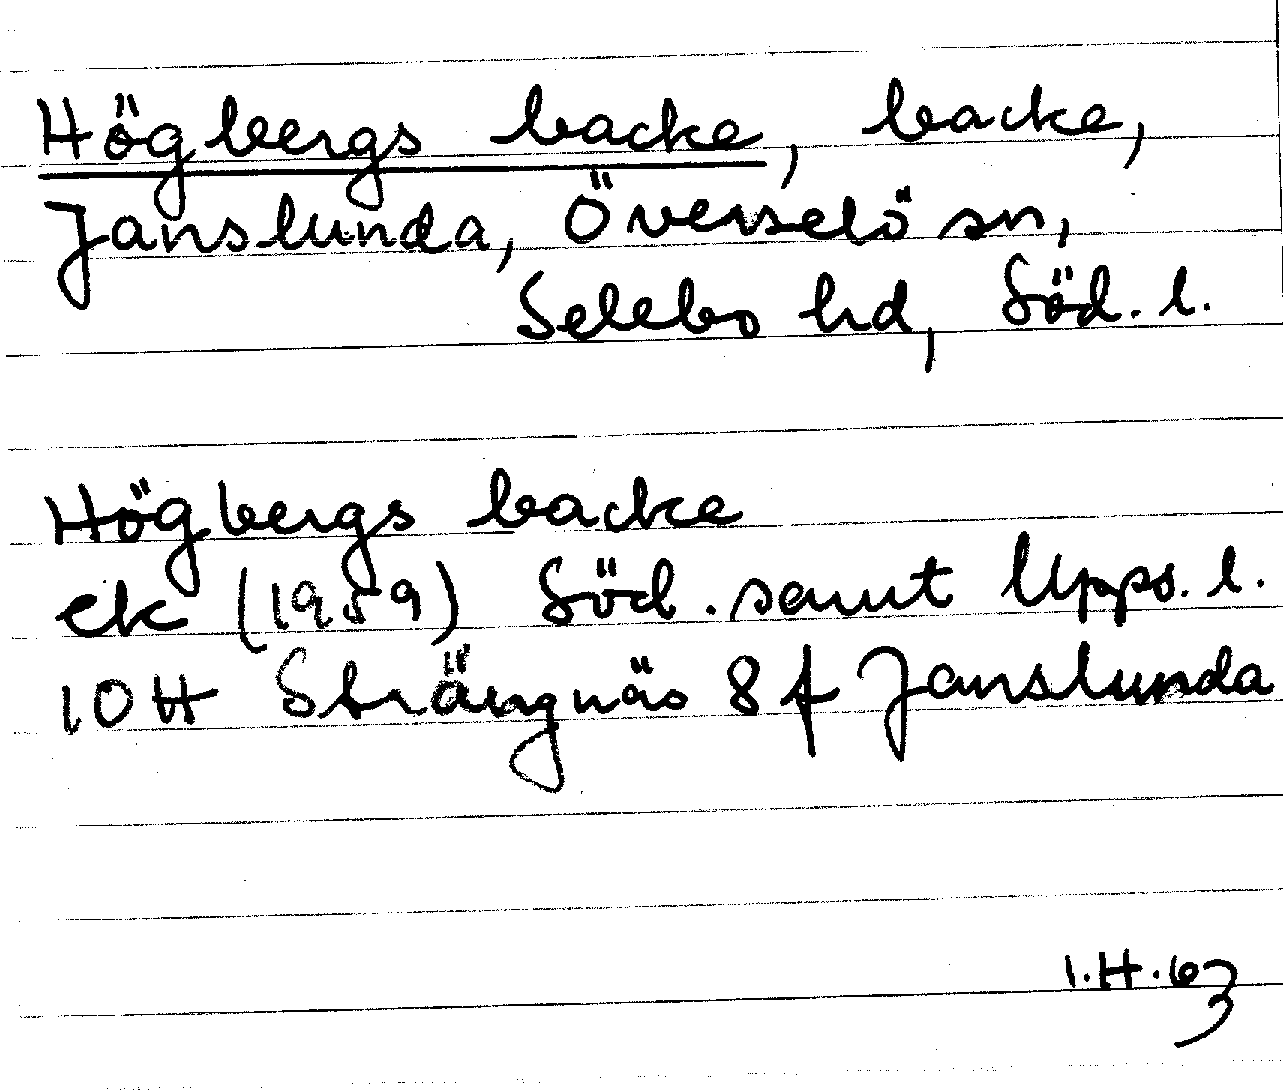 Högbergs backe, backe,
Janslunda, Överselö sn,
Selebo hd, Söd. l.
Högbergs backe
ek (1959) Söd. samt Upps. l.
10H Strängnäs 8 f Janslunda
I.H.63